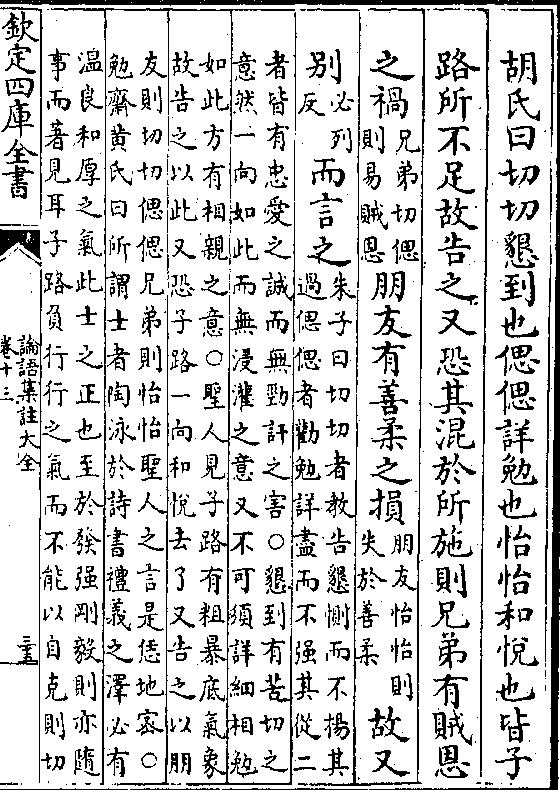 胡氏曰切切懇到也偲偲詳勉也怡怡和悅也皆子
路所不足故告之又恐其混於所施則兄弟有賊恩
之禍
兄弟切偲
則易賊恩
朋友有善柔之損
朋友怡怡則
失於善柔
故又
別
必列
反
而言之
朱子曰切切者教告懇惻而不揚其
過偲偲者勸勉詳盡而不强其從二
者皆有忠愛之誠而無勁訐之害○懇到有苦切之
意然一向如此而無浸灌之意又不可須詳細相勉
如此方有相親之意○聖人見子路有粗暴底氣象
故告之以此又恐子路一向和悅去了又告之以朋
友則切切偲偲兄弟則怡怡聖人之言是恁地宻○
勉齋黄氏曰所謂士者陶泳於詩書禮義之澤必有
温良和厚之氣此士之正也至於發强剛毅則亦隨
事而著見耳子路負行行之氣而不能以自克則切
欽定四庫全書
論語集註大全
卷十三
三五